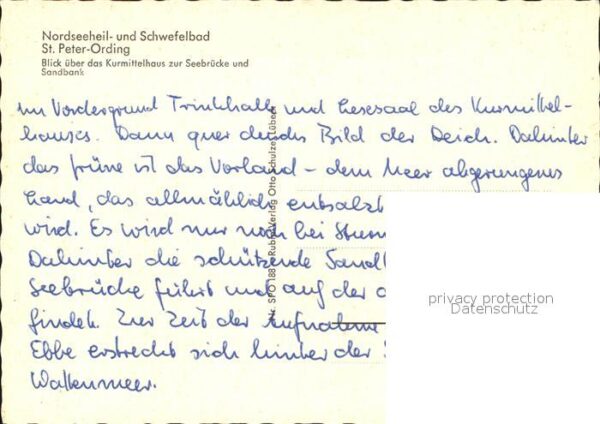 Nordseeheil- und Schwefelbad
St. Peter-Ording
Blick über das Kurmittelhaus zur Seebrücke und
Sandbank
im Vordergrund Trinkhalle und Lesesaal des Kurmittel-
hauses. Dann quer durchs Bild der Deich. Dahinter
das grüne ist das Vorland – dem Meer abgerungenes
Land, das allmählich entsalzt
wird. Es wird nur noch bei
Dahinter die schützende
Seebrücke führt und auf der
findet. Zur Zeit der Aufnahme
Ebbe erstreckt sich hinter der
Wattenmeer.
Rubin-Verlag Otto Schulze, Lübeck
privacy protection
Datenschutz